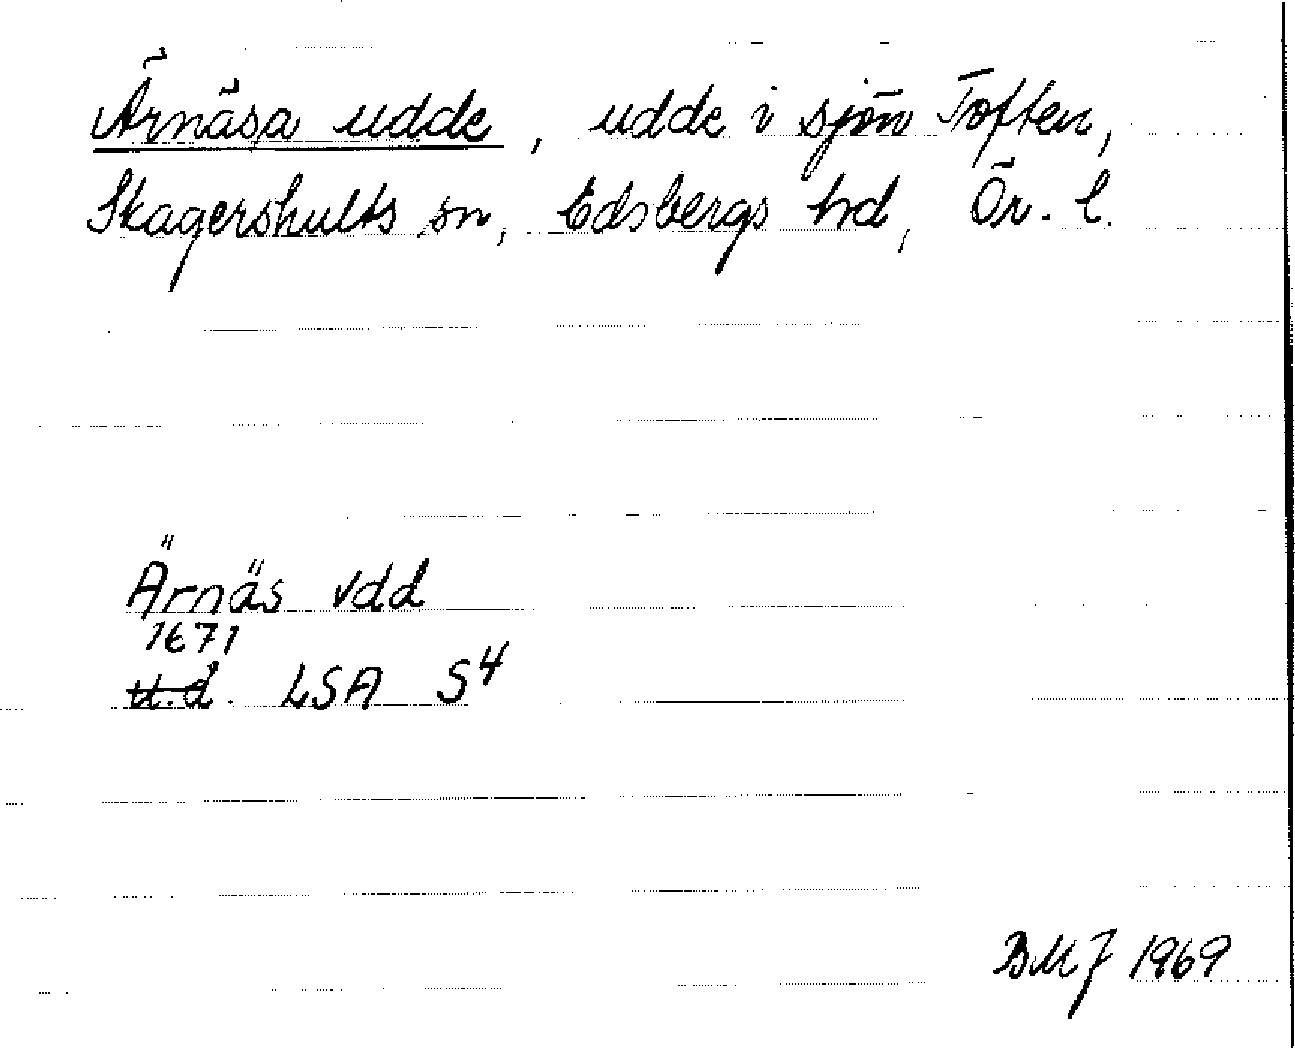 Ärnäsa udde, udde i sjön Toften,
Skagershults sn, Edsbergs hd, Ör. l.
Ärnäs vdd
1671
u.d. LSA S4
BMJ 1969